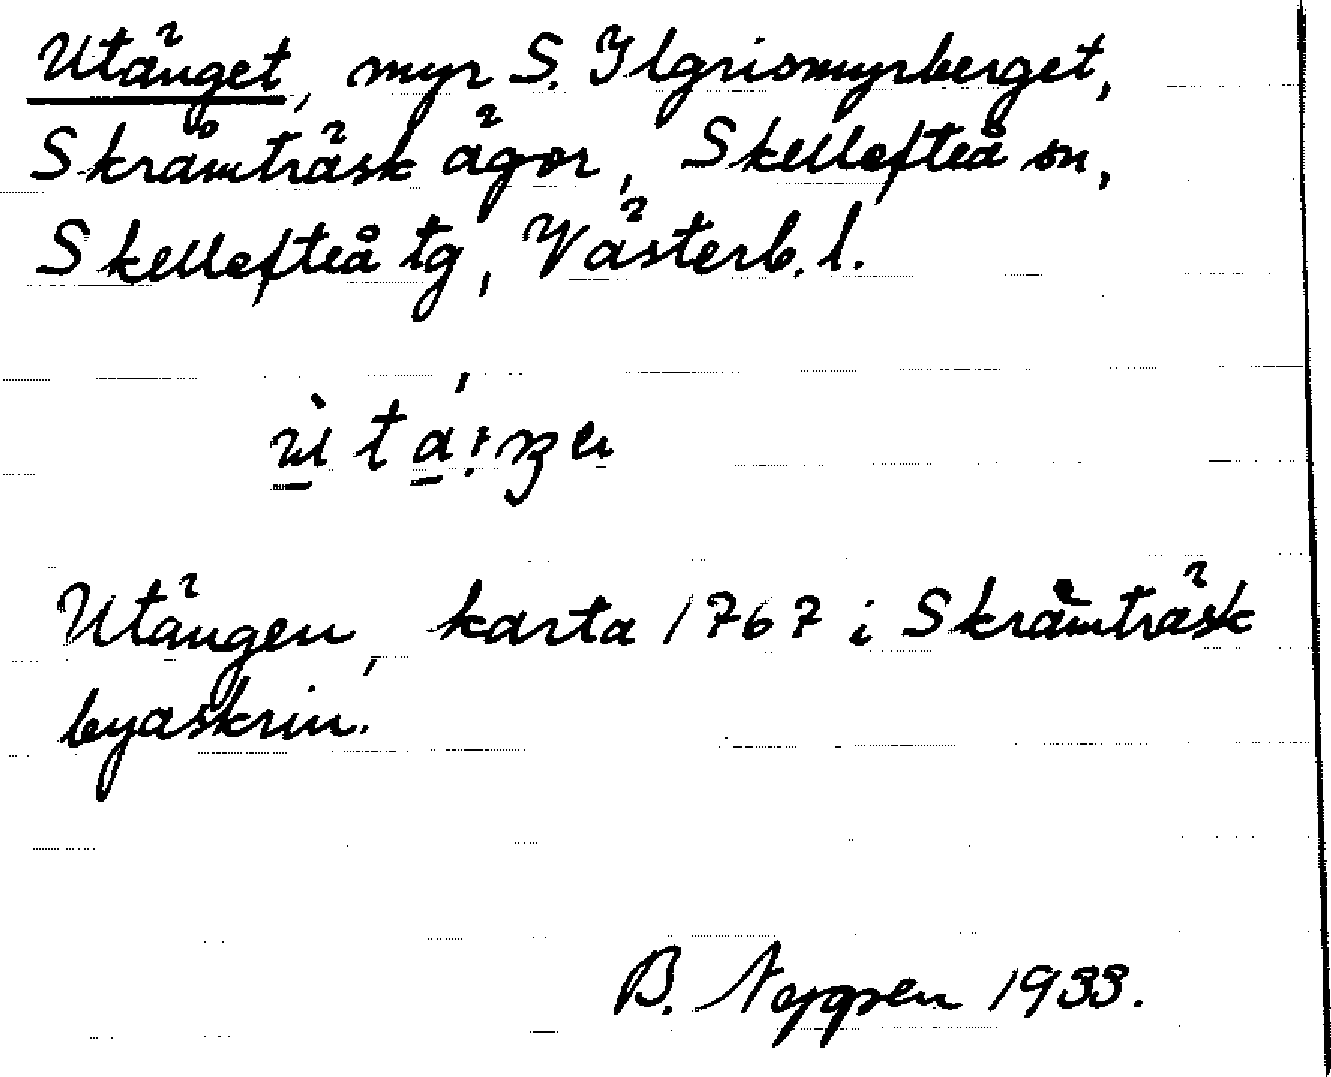 Utänget, myr S. Ilgrismyrberget,
Skråmträsk ägor, Skellefteå sn,
Skellefteå tg, Västerb. l.
Utängen, karta 1767 i Skråmträsk
byaskrin.
B. 1933.